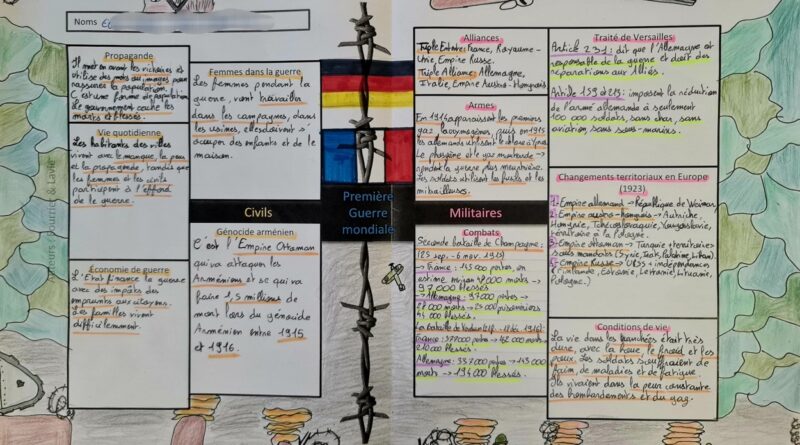 Noms :
Propagande
Il met en avant les victoires et
utilise des mots ou images pour
rassurer la population.
C'est une forme de
Le gouvernement cache les
morts et blessés.
Vie quotidienne
Les habitants des villes
vivent avec le manque, la peur
et la propagande, tandis que
les femmes et les civils
participent à l'effort
de la guerre.
Économie de guerre
L'État finance la guerre
avec des impôts des
emprunts aux citoyens.
Les familles vivent
difficilement.
Femmes dans la guerre
Les femmes pendant la
guerre, vont travailler
dans les campagnes, dans
les usines, elles doivent s'
occuper des enfants et de la
maison.
Civils
Génocide arménien
C'est l'Empire Ottoman
qui va attaquer les
Arméniens et se qui va
faire 1,5 millions de
mort lors du génocide
Arménien entre 1915
et 1916.
Première
Guerre
mondiale
Alliances
Triple Entente France, Royaume-
Unie Empire Russe.
Triple Alliance Allemagne,
Italie, Empire Austro-Hongrois
Armes
En 1914 apparaissent les premiers
gaz lacrymogènes, puis en 1915
les allemands utilisent le chlore à
Le phosgène et le gaz moutarde →
rendent la guerre plus meurtrière.
Les soldats utilisent les fusils et les
mitrailleuses.
Militaires
Combats
Seconde bataille de Champagne :
(25 sep. - 6 nov. 1915)
→ France :
estime
97 000 blessés
→ Allemagne : 97 000 pertes →
morts → prisonniers
blessés.
La bataille de Verdun
France : 377 000 pertes → morts →
blessés.
Allemagne : 337 000 pertes → 143 000
morts → 194 000 blessés.
Traité de Versailles
Article 231 : dit que l'Allemagne est
responsable de la guerre et doit des
réparations aux Alliés.
Article 159 à 213 : imposent la réduction
de l'armé allemande à seulement
100 000 soldats, sans char, sans
aviation, sans sous-marins.
Changements territoriaux en Europe
(1923)
Empire allemand → République de Weimar
Empire austro-hongrois → Autriche,
Hongrie, Tchécoslovaquie, Yougoslavie,
territoire à la Pologne.
Empire ottoman → Turquie + territoires
sous mandats (Syrie, Irak, Palestine, Liban).
Empire Russe → URSS + indépendances
(Finlande, Estonie, Lettonie, Lituanie,
Pologne.)
Conditions de vie
La vie dans les tranchées était très
dure, avec la boue le froid et les
poux. Les soldats souffraient de
faim, de maladies et de fatigue
Ils vivaient dans la peur constante
des bombardements et du gaz.